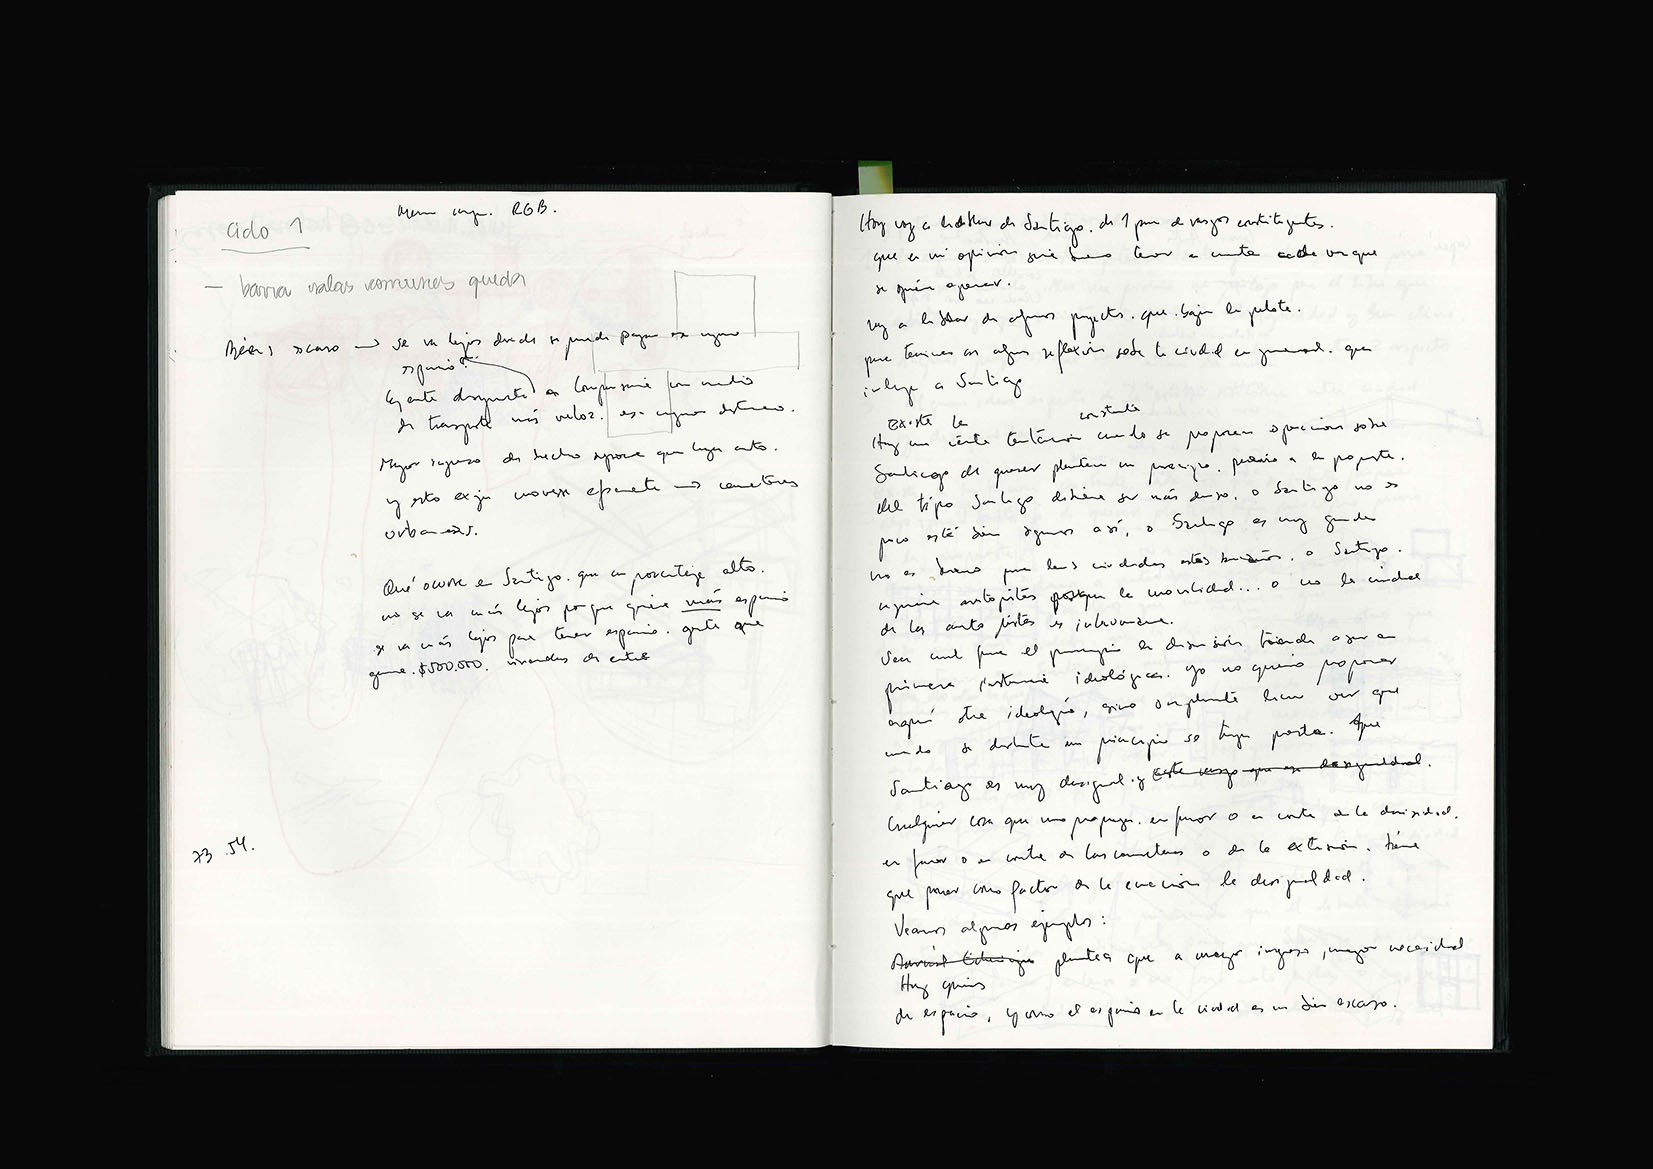 RGB.
ciclo 1
— barra salas comunes queda
escaso → se va lejos donde se puede pagar ese mayor
espacio.
la gente después en con medio
de transporte más veloz. esa mayor distancia.
Mayor ingreso de hecho supone que haya auto.
y esto exige moverse → carreteras
urbanas.
Qué ocurre en Santiago. que un porcentaje alto.
no se va más lejos porque quiere más espacio
se va más lejos para tener espacio. gente que
gana $500.000. viviendas de entre
23 .54.
Hoy voy a hablar de Santiago. de 1 par de rasgos constituyentes.
que en mi opinión sería bueno tener en cuenta cada vez que
se quiera operar.
Voy a hablar de algunos proyectos. que bajan la pelota.
para terminar con alguna reflexión sobre la ciudad en general. que
incluye a Santiago
Existe la constante
Hay una cierta tentación cuando se proponen operaciones sobre
Santiago de querer plantear un principio, previo a la propuesta.
del tipo Santiago debiera ser más denso, o Santiago no es
poco está bien sigamos así, o Santiago es muy grande
no es bueno que las ciudades estas, o Santiago.
requiere autopistas porque la movilidad... o no la ciudad
de las autopistas es inhumana.
Sea cual fuere el principio la discusión tiende a ser en
primera instancia ideológica. Yo no quiero proponer
aquí otra ideología, sino simplemente hacer ver que
cuando se discute un principio se tenga presente. Que
Santiago es muy desigual. y este rasgo que es desigualdad.
Cualquier cosa que uno proponga. en favor o en contra de la densidad.
en favor o en contra de las carreteras o de la extensión. tiene
que poner como factor de la ecuación la desigualdad.
Veamos algunos ejemplos:
plantea que a mayor ingreso, mayor necesidad
Hay quienes
de espacio, y como el espacio en la ciudad es un bien escaso.